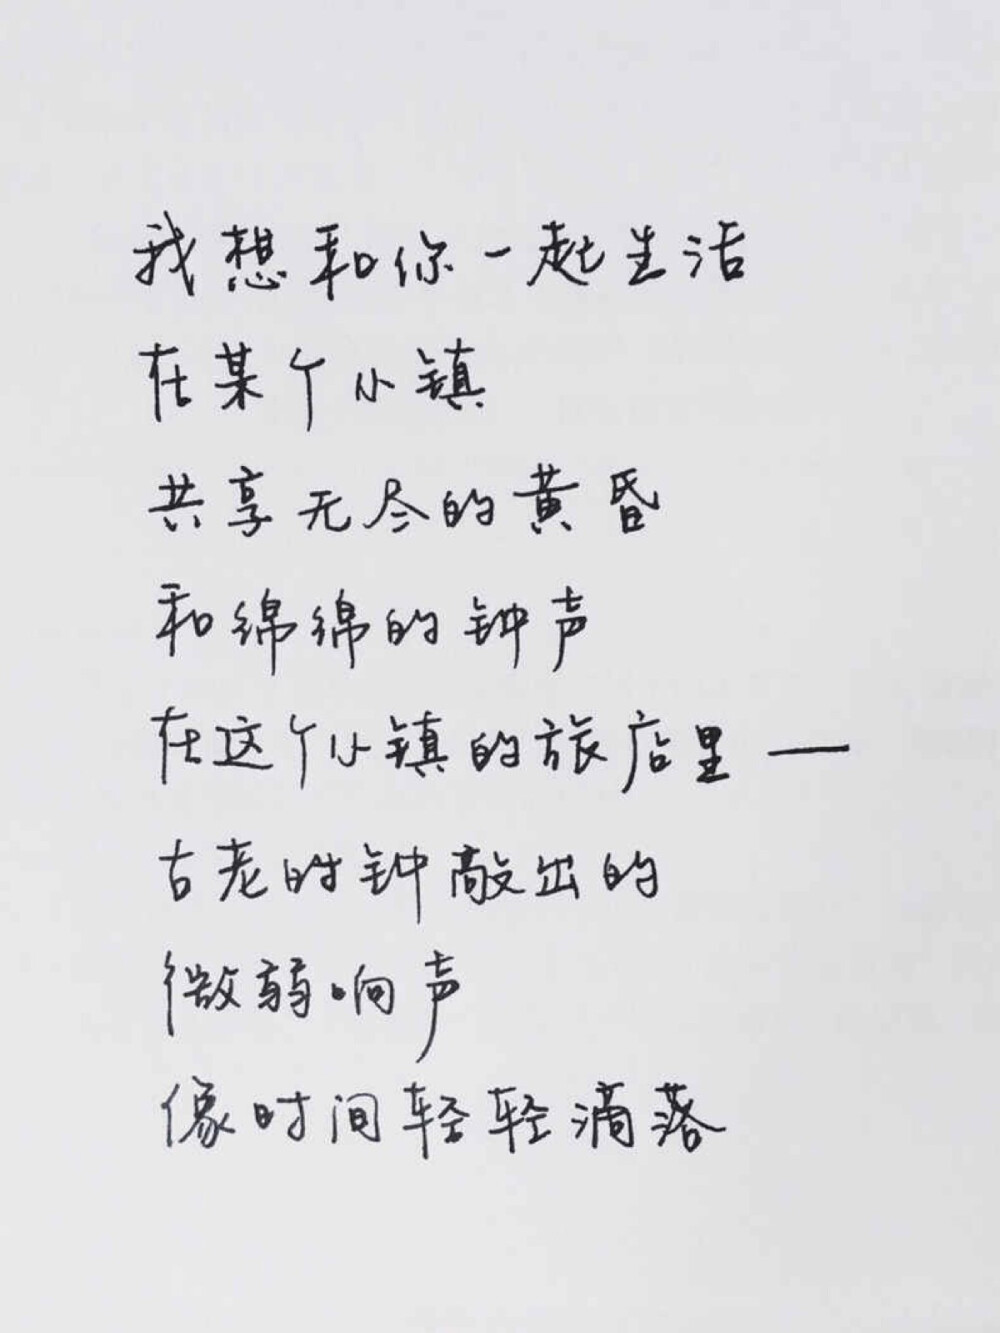 我想和你一起生活
在某个小镇
共享无尽的黄昏
和绵绵的钟声
在这个小镇的旅店里——
古老时钟敲出的
微弱响声
像时间轻轻滴落